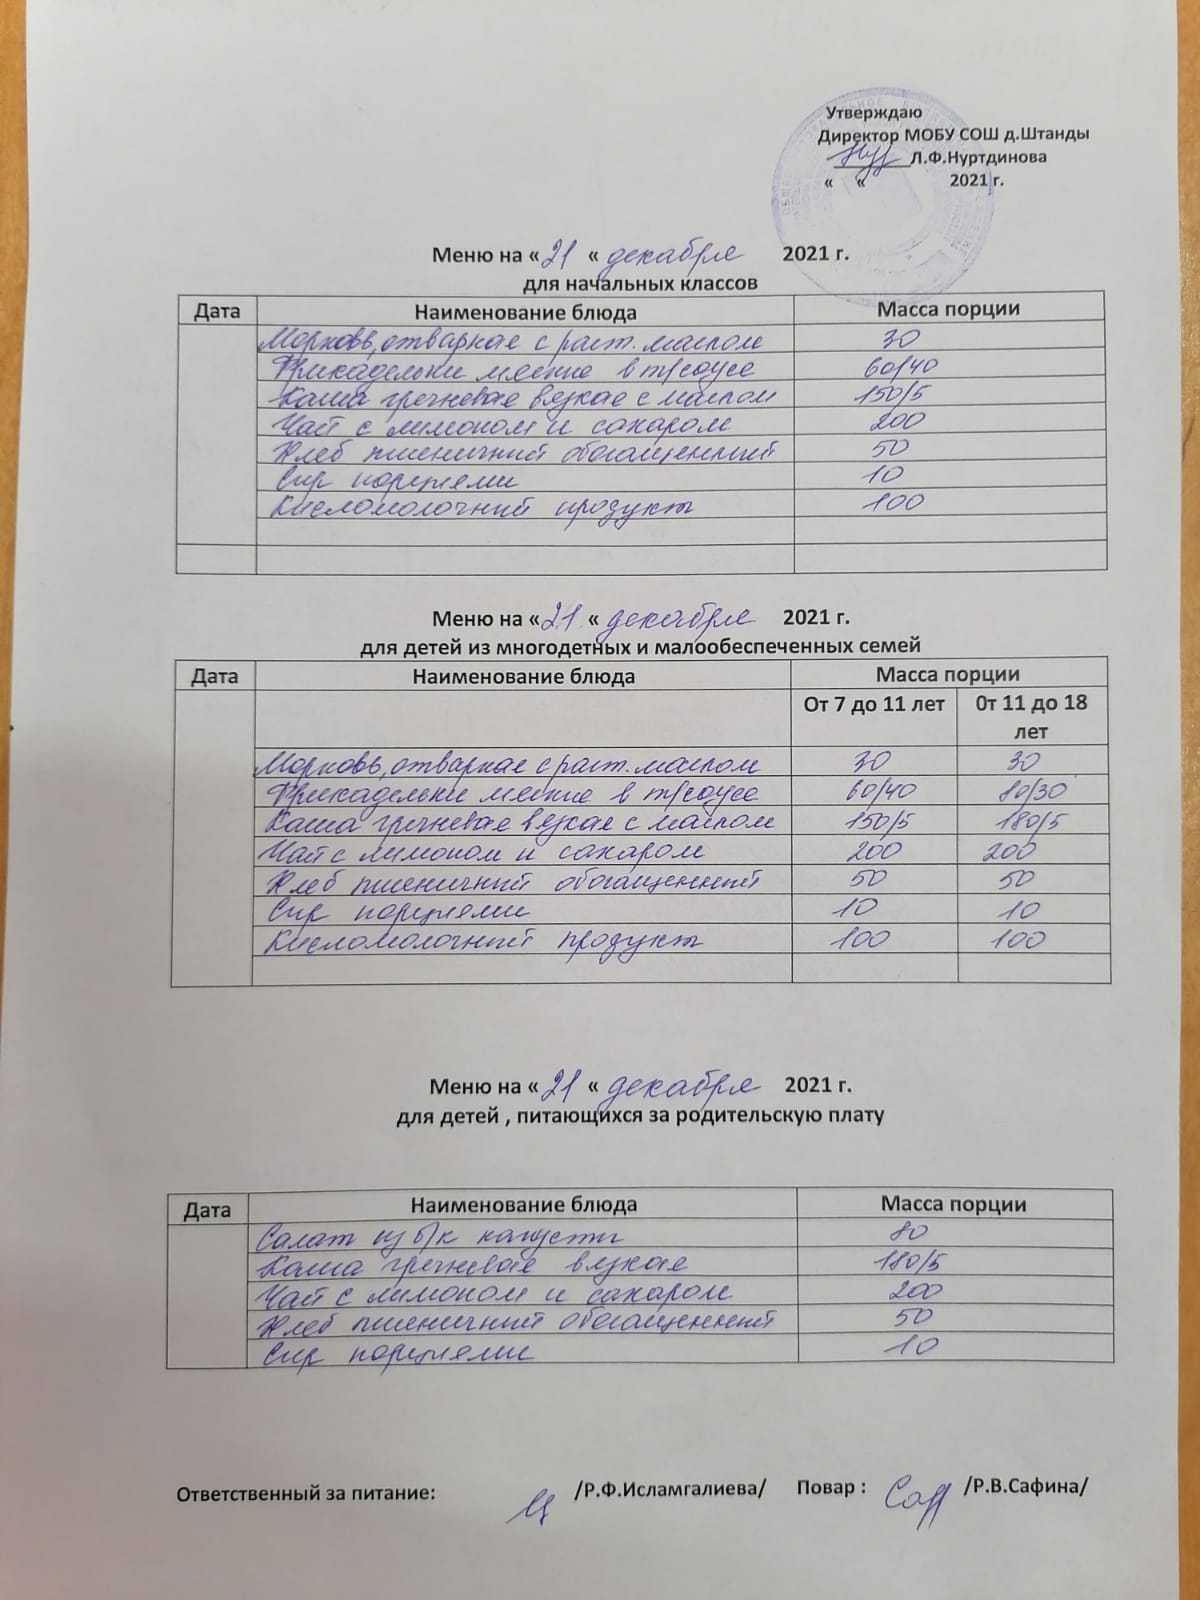 Утверждаю
Директор МОБУ СОШ д.Штанды
Л.Ф.Нуртдинова
« « 2021 г.
Меню на « 21 « декабря 2021 г.
для начальных классов
Дата Наименование блюда Масса порции
Морковь, отварная с раст. маслом 30
Фрикадельки мясные в т/соусе 60/40
Каша гречневая вязкая с маслом 150/5
Чай с лимоном и сахаром 200
Хлеб пшеничный обогащенный 50
Сыр порциями 10
Кисломолочный продукт 100
Меню на « 21 « декабря 2021 г.
для детей из многодетных и малообеспеченных семей
Дата Наименование блюда Масса порции
От 7 до 11 лет 0т 11 до 18
лет
Морковь, отварная с раст. маслом 30 30
Фрикадельки мясные в т/соусе 60/40 80/30
Каша гречневая вязкая с маслом 150/5 180/5
Чай с лимоном и сахаром 200 200
Хлеб пшеничный обогащенный 50 50
Сыр порциями 10 10
Кисломолочный продукт 100 100
Меню на « 21 « декабря 2021 г.
для детей , питающихся за родительскую плату
Дата Наименование блюда Масса порции
Салат из б/к капусты 80
Каша гречневая вязкая 180/5
Чай с лимоном и сахаром 200
Хлеб пшеничный обогащенный 50
Сыр порциями 10
Ответственный за питание: /Р.Ф.Исламгалиева/ Повар : /Р.В.Сафина/